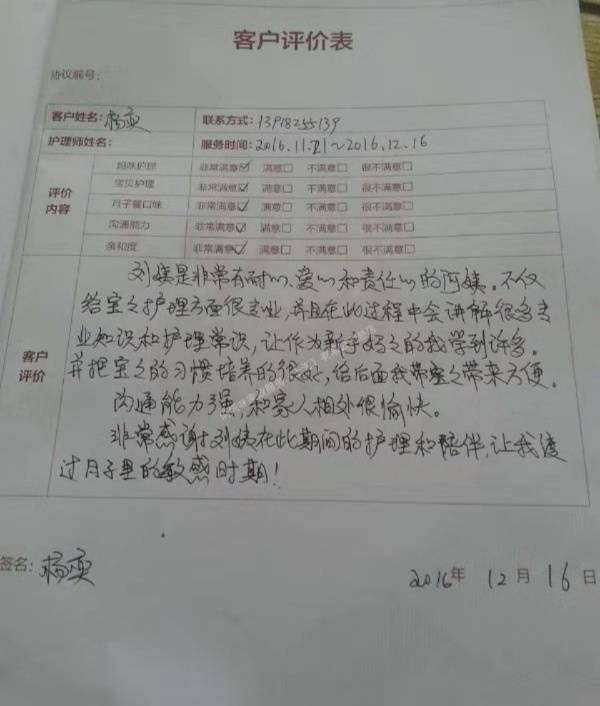 客户评价表
协议编号:
客户姓名: 杨奕 联系方式: 13918255139
护理师姓名: 服务时间: 2016.11.21~2016.12.16
评价内容
妈咪护理 非常满意☑ 满意□ 不满意□ 很不满意□
宝贝护理 非常满意☑ 满意□ 不满意□ 很不满意□
月子餐口味 非常满意☑ 满意□ 不满意□ 很不满意□
沟通能力 非常满意☑ 满意□ 不满意□ 很不满意□
亲和度 非常满意☑ 满意□ 不满意□ 很不满意□
客户评价
刘姨是非常有耐心、爱心和责任心的阿姨。不仅
给宝宝护理方面很专业,并且在此过程中会讲解很多专
业知识和护理常识,让作为新手妈妈的我学到许多。
并把宝宝的习惯培养的很好,给后面我带宝宝带来方便。
沟通能力强,和家人相处很愉快。
非常感谢刘姨在此期间的护理和陪伴,让我度
过月子里的敏感时期!
签名: 杨奕 2016年 12月 16日